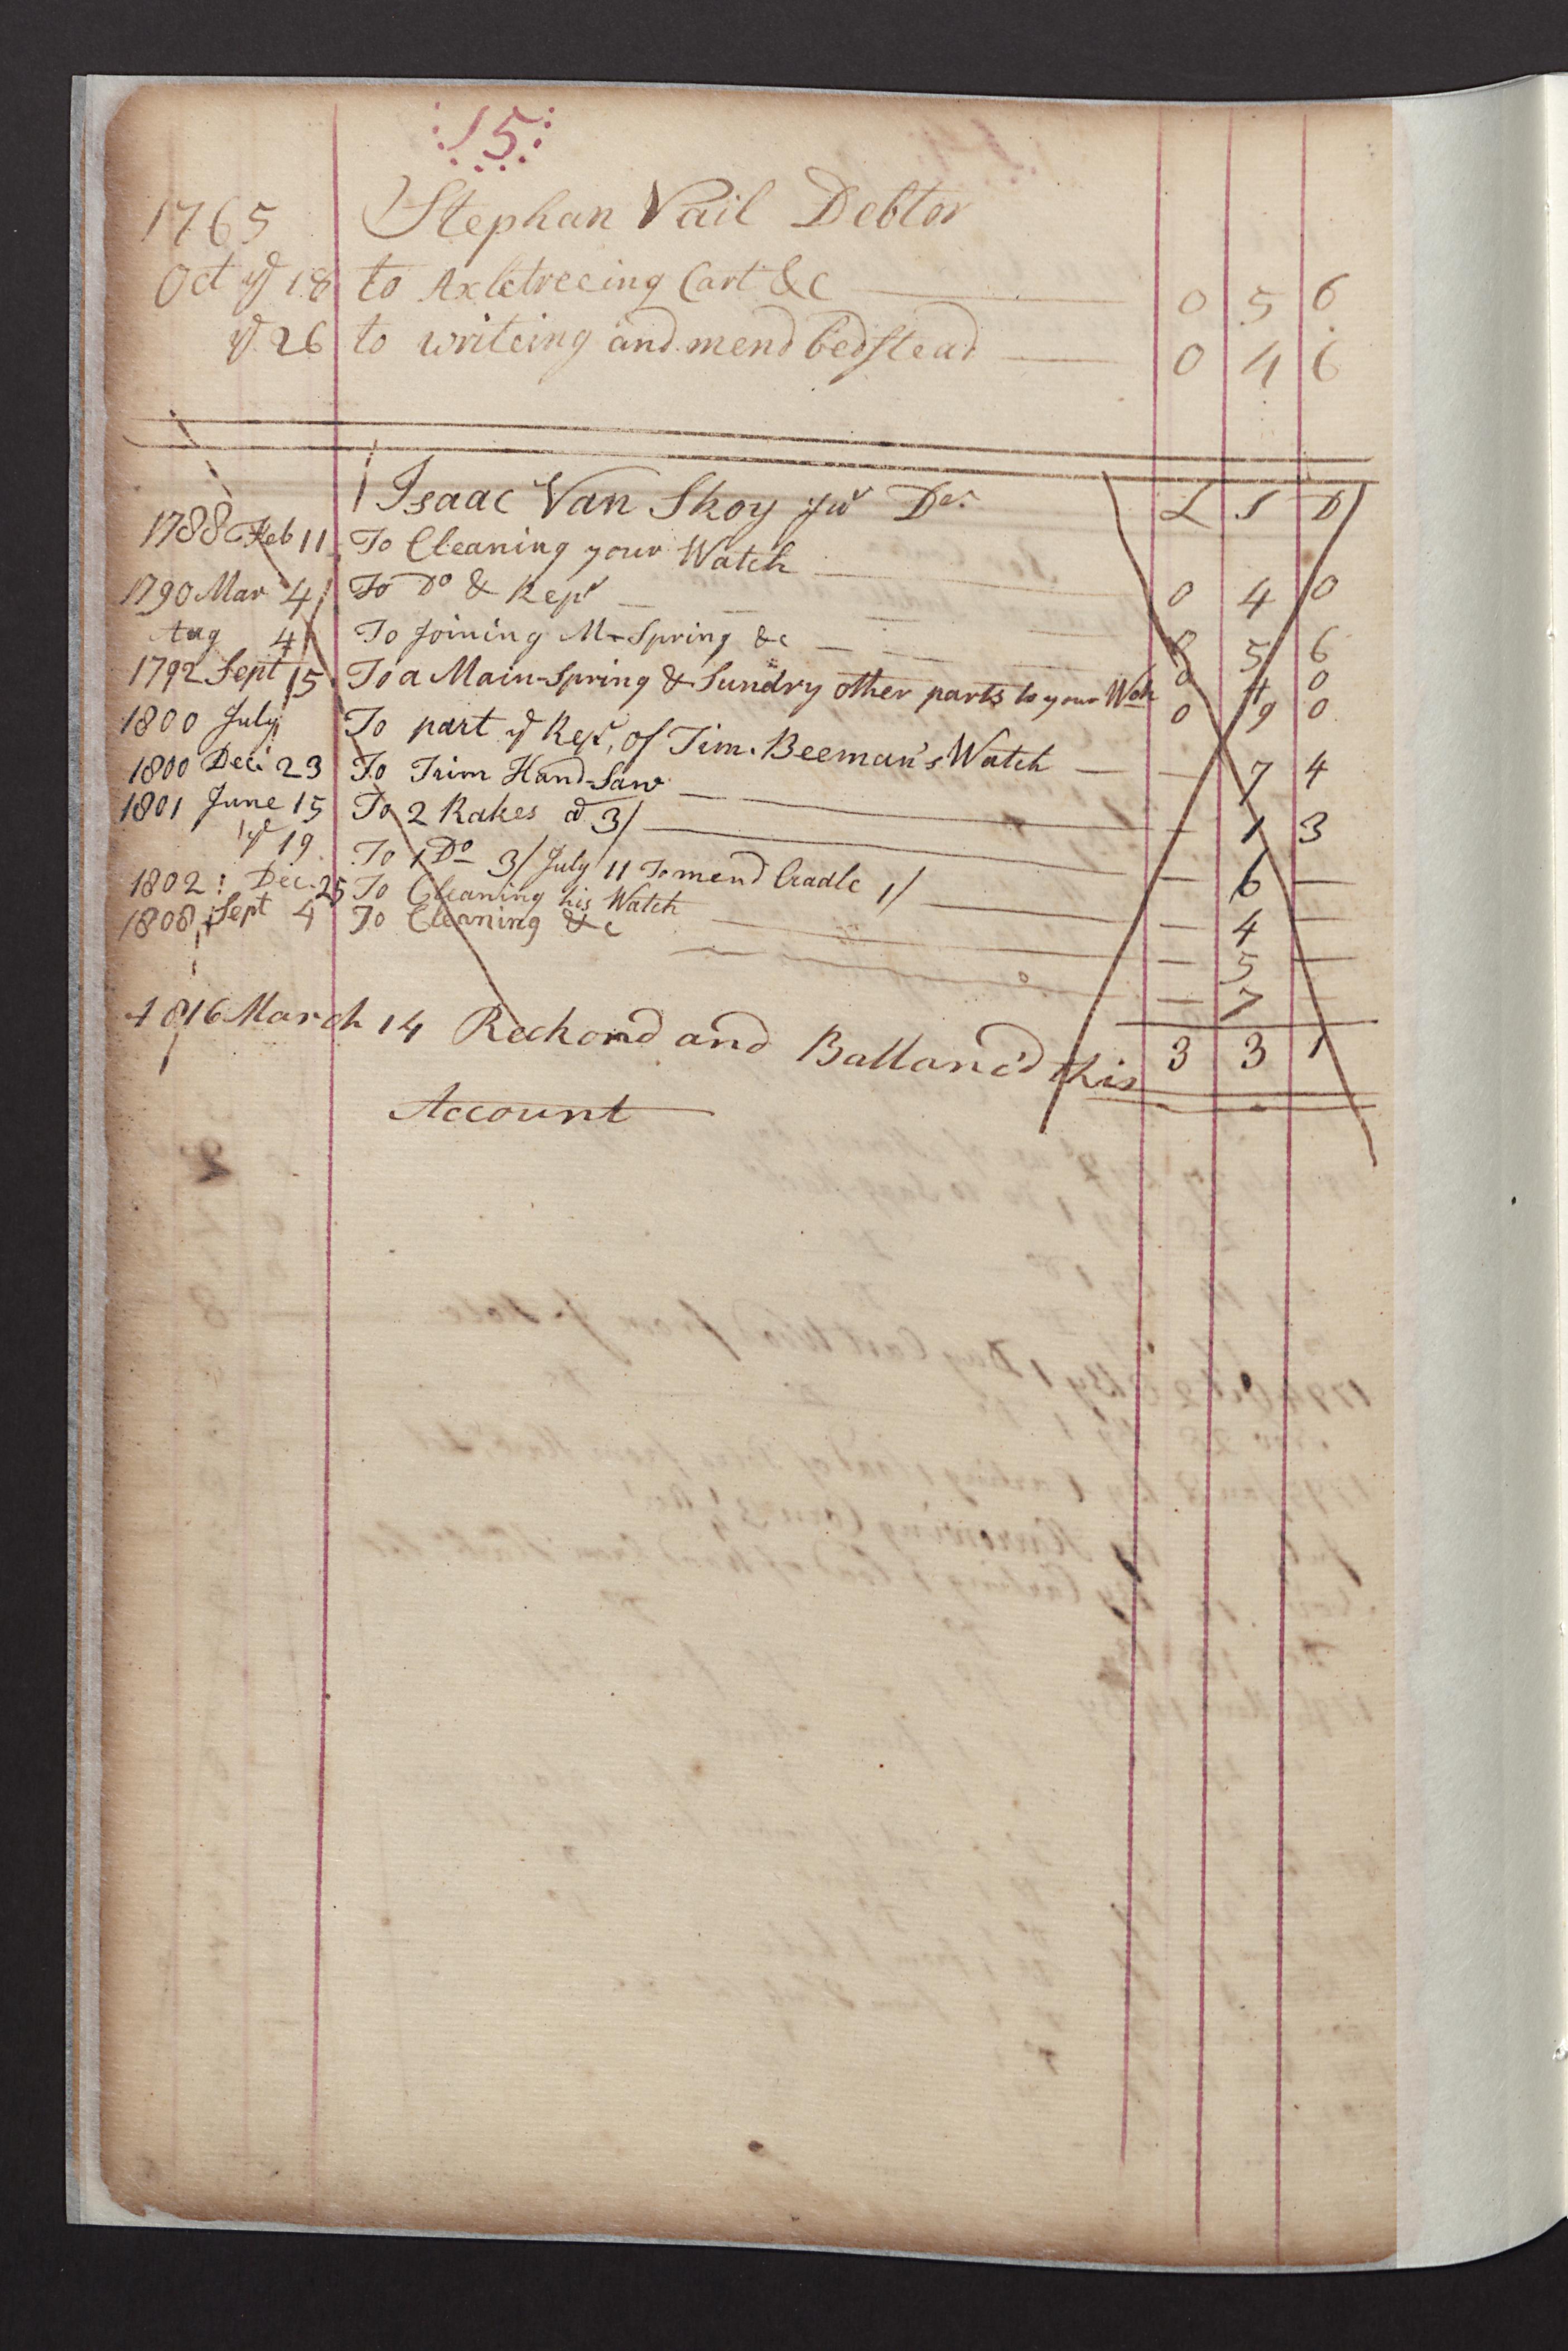 15
1765 Stephan Vail Debtor
Oct ye 18 to Axletreeing Cart &c 0 5 6
ye 26 to writeing and mend bedstead 0 4 6
Isaac Van Skoy Jur Dr. L S D
1788 Feb 11 To Cleaning your Watch 0 4 0
1790 Mar 4 To Do & Repr 0 5 6
Aug 4 To Joining M-Spring &c 0 4 0
1792 Sept 15 To a Main-Spring & Sundry other parts to your Wch 0 19 0
1800 July To part ye Repr, of Tim. Beeman's Watch — 7 4
1800 Dec: 23 To Trim Hand-Saw — 1 3
1801 June 15 To 2 Rakes @ 3/ — 6 —
ye 19 To 1 Do 3/ July 11 To mend Cradle 1/ — 4 —
1802: Dec. 25 To Cleaning his Watch — 5 —
1808 Sept 4 To Cleaning &c — 7 —
1816 March 14 Reckond and Ballanc'd this 3 3 1
Account